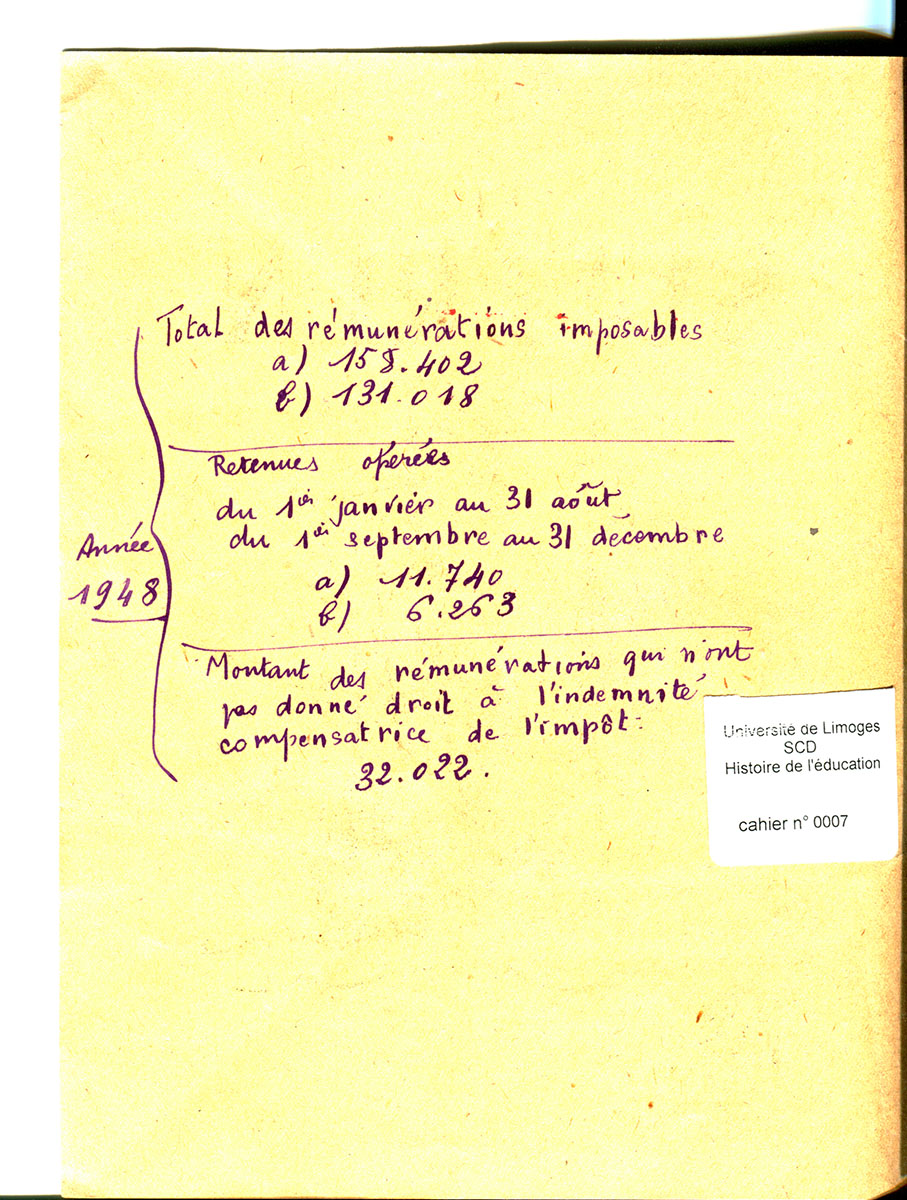 Total des rémunérations imposables
a) 158.402
b) 131.018
Retenues opérées
du 1er janvier au 31 août
du 1er septembre au 31 décembre
a) 11.740
b) 6.263
Année
1948
Montant des rémunérations qui n'ont
pas donné droit à l'indemnité
compensatrice de l'impôt:
32.022.
Université de Limoges
SCD
Histoire de l'éducation
cahier n° 0007